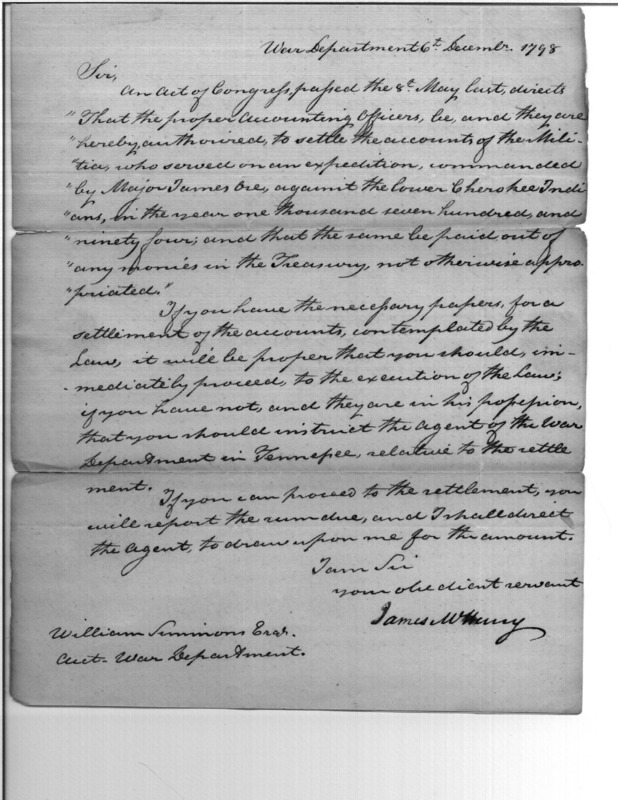 War Department 6th. Decembr. 1798
Sir,
An Act of Congress, passed the 8th. May last, directs
"That the proper Accounting Officers, be, and they are
"hereby, authorized, to settle the accounts of the Mili-
"tia, who served on an expedition, commanded
"by Major James Ore, against the lower Cherokee Indi
"ans, in the year one thousand seven hundred, and
"ninety four; and that the same be paid out of
"any monies in the Treasury, not otherwise appro-
"priated."
If you have the necessary papers, for a
settlement of the accounts, contemplated by the
Law, it will be proper that you should, im-
-mediately proceed, to the execution of the Law;
if you have not, and they are in his possession,
that you should instruct the Agent of the War
Department in Tennessee, relative to the settle
ment.
If you can proceed to the settlement, you
will report the sum due, and I shall direct
the Agent, to draw upon me for the amount.
I am Sir
your obedient servant
James McHenry
William Simmons Esqr.
Acct. War Department.